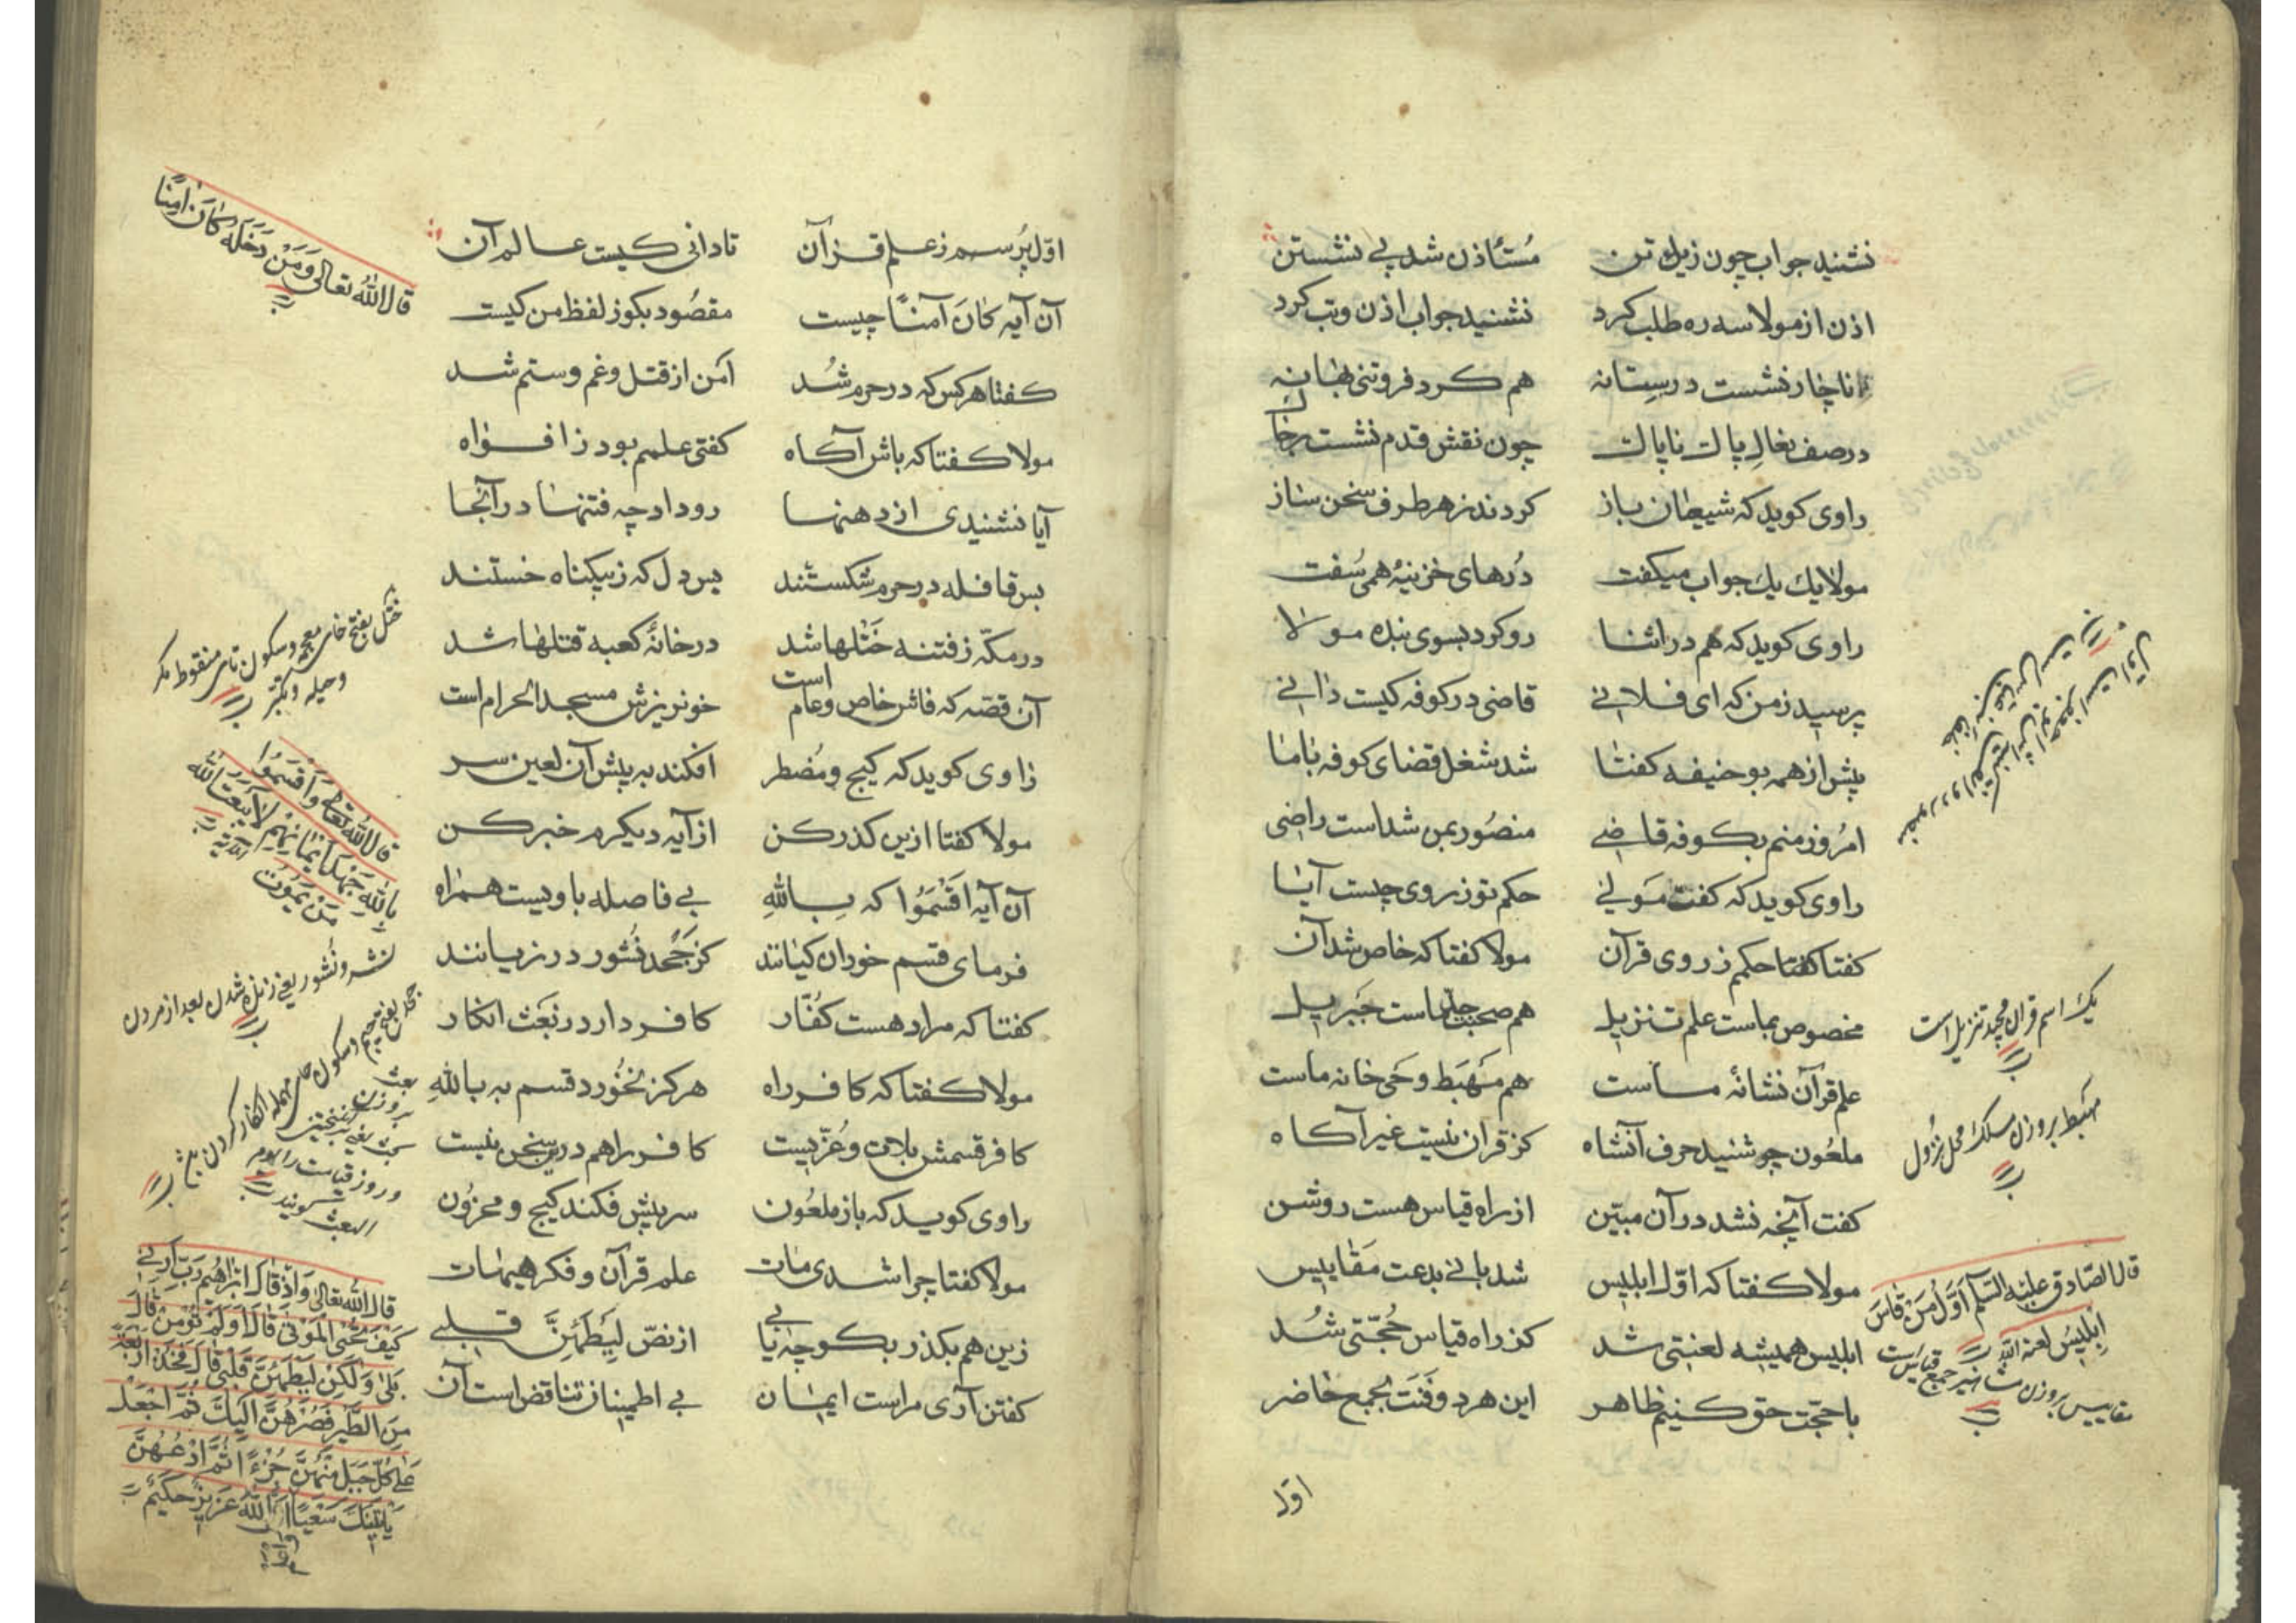 نشنید جواب چون زیل تن مستأذن شد پی نشستن
اذن از مولا سه ره طلب کرد نشنید جواب اذن و تب کرد
ناچار نشست در ستانه هم کرد فروتنی بهانه
در صف نعال پاک ناپاک چون نقش قدم نشست بر خاک
راوی کوید که شیعیان باز کردند ز هر طرف سخن ساز
مولا یك یك جواب میکفت درهای خزینه همی سفت
راوی کوید که هم در اثنا رو کرد بسوی بنده مولا
پرسید ز من که ای فلانی قاضی در کوفه کیست دانی
پیش از همه بو حنیفه کفتا شد شغل قضای کوفه باما
امروز منم بکوفه قاضی منصور بمن شداست راضی
راوی کوید که کفت مولی حکم تو ز روی چیست آیا
کفتا کفتا حکمم ز روی قرآن مولا کفتا که خاص شد آن
مخصوص بماست علم تنزیل هم صحبت جد ماست جبریل
علم قرآن نشانهٔ ماست هم مهبط وحی خانه ماست
ملعون چو شنید حرف آنشاه کز قران نیست غیر آکاه
کفت آنچه نشد در آن مبین از راه قیاس هست روشن
مولا کفتا که اول ابلیس شد بانی بدعت مقاییس
ابلیس همیشه لعنتی شد کز راه قیاس حجتی شد
با حجت حق کنیم ظاهر این هر دو فنت بجمع حاضر
اول
یك اسم قران مجید تنزیل است
مهبط بر وزن مسلك محل نزول
قال الصادق علیه السلم اول من قاس
ابلیس لعنه الله
مقاییس بر وزن جمع قیاس است
اول پرسم ز علم قرآن تا دانی کیست عالم آن
آن آیه کان آمنا چیست مقصود بکو ز لفظ من کیست
کفتا هر کس که در حرم شد امن از قتل و غم و ستم شد
مولا کفتا که باش آکاه کفتی علمم بود ز افواه
آیا نشنیدی از دهنها رو داد چه فتنها در آنجا
بس قافله در حرم شکستند بس دل که ز بیکناه خستند
در مکه ز فتنه ختلها شد در خانهٔ کعبه قتلها شد
آن قصه که فاش خاص و عام است خونریزش مسجد الحرام است
راوی کوید که کیج و مضطر افکند به پیش آن لعین سر
مولا کفتا ازین کذر کن از آیه دیکرم خبر کن
آن آیه اقسموا که بالله بی فاصله با ویست همراه
فرمای قسم خوران کیانند کز جحد نشور در زیانند
کفتا که مراد هست کفار کافر دارد ز بعث انکار
مولا کفتا که کافر راه هرکز نخورد قسم به بالله
کافر قسمش بلات و عزیست کافر را هم درین سخن نیست
راوی کوید که باز ملعون سر پیش فکند کیج و محزون
مولا کفتا چرا شدی مات علم قرآن و فکر هیهات
زین هم بکذر بکو چه یابی از نص لیطمئن قلبی
کفتن آری مراست ایمان بی اطمینان تناقض است آن
قال الله تعالی ومن دخله کان امنا
ختل بفتح خای معجمه و سکون تای منقوط مکر
و حیله
قال الله تعالی واقسموا
بالله جهد ایمانهم لا یبعث الله
من یموت الآیة
نشر و نشور یعنی زنده شدن بعد از مردن
جحد بفتح جیم و سکون حای مهمله انکار کردن
بعث
و روز قیامت را یوم
البعث کویند
قال الله تعالی واذ قال ابراهیم رب ارنی
کیف تحیی الموتی قال اولم تؤمن قال
بلی ولکن لیطمئن قلبی قال فخذ اربعة
من الطیر فصرهن الیك ثم اجعل
علی کل جبل منهن جزءا ثم ادعهن
یاتینك سعیا الله عزیز حکیم